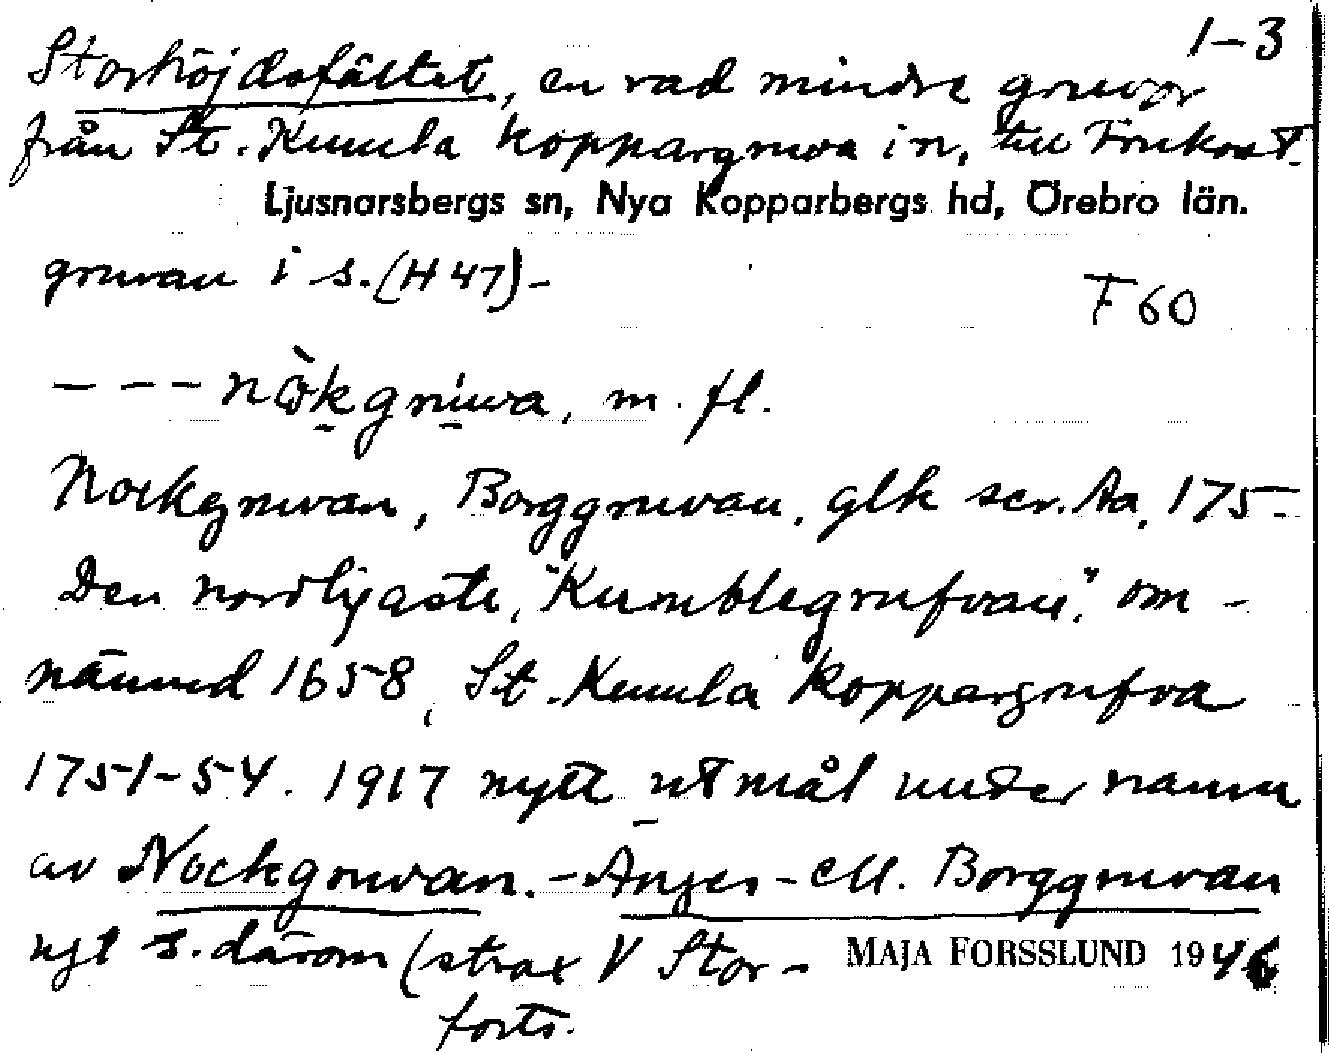 1-3
Storhöjdsfältet, en rad mindre gruvor
från St. Kumla koppargruva i n, till Frukost-
Ljusnarsbergs sn, Nya Kopparbergs hd, Örebro län.
gruvan i s. (H 47)-
F 60
--- nòkgruva, m. fl.
Nockgruvan, Borggruvan, glk scr. Aa, 175-
Den nordligaste, "Kumblegrufvan", om-
nämnd 1658, St. Kumla Koppargrufva
1751-54. 1917 nytt utmål under namn
av Nockgruvan. - Anger- ell. Borggruvan
ngt s. därom (strax V Stor-
MAJA FORSSLUND 1946
forts.